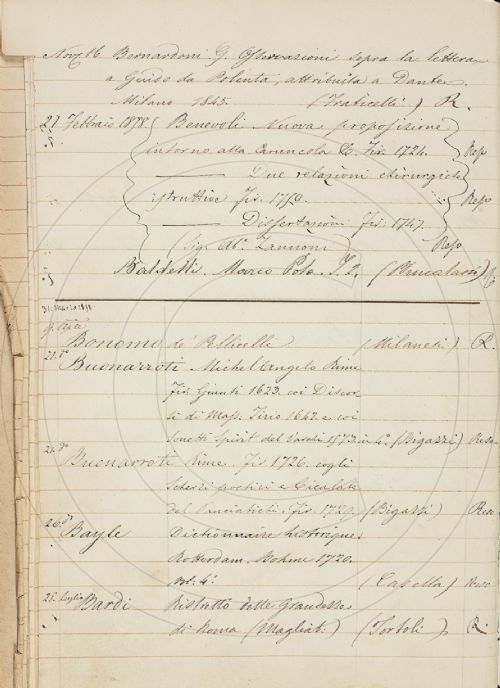 Nov. 16 Bernardoni G. Osservazioni sopra la lettera
a Guido da Polenta, attribuita a Dante.
Milano 1845. (Fraticelli) R.
27 Febbraio 1878. Benevoli Nuova proposizione
intorno alla Caruncola &. Fir. 1724. Reso
Due relazioni chirurgiche
istruttive Fir. 1750. Reso
Dissertazioni Fir. 1747.
(Sig. Ab. Zannoni) Reso
Baldelli Marco Polo. T. 2.
31. Marzo 1818.
Bonomo de' Pellicelli (Milanesi) R.
21. do
Buonarroti Michelangelo Rime
Fir. Giunti 1623. coi Discor
si di Mass. Tirio 1642. e coi
Sonetti Spirit. del Varchi 1573 in 4o. (Bigazzi) Reso
24. do
Buonarroti Rime. Fir. 1726. cogli
Scherzi poetici e Cicalate
Fir. 1729. (Bigazzi) Reso
26. do
Bayle Dictionnaire historique
Rotterdam. Bohme 1720.
vol. 4. (Capella) Reso
21. Luglio Bardi Ristretto delle Grandezze
di Roma (Magliab.) (Tortoli) R.